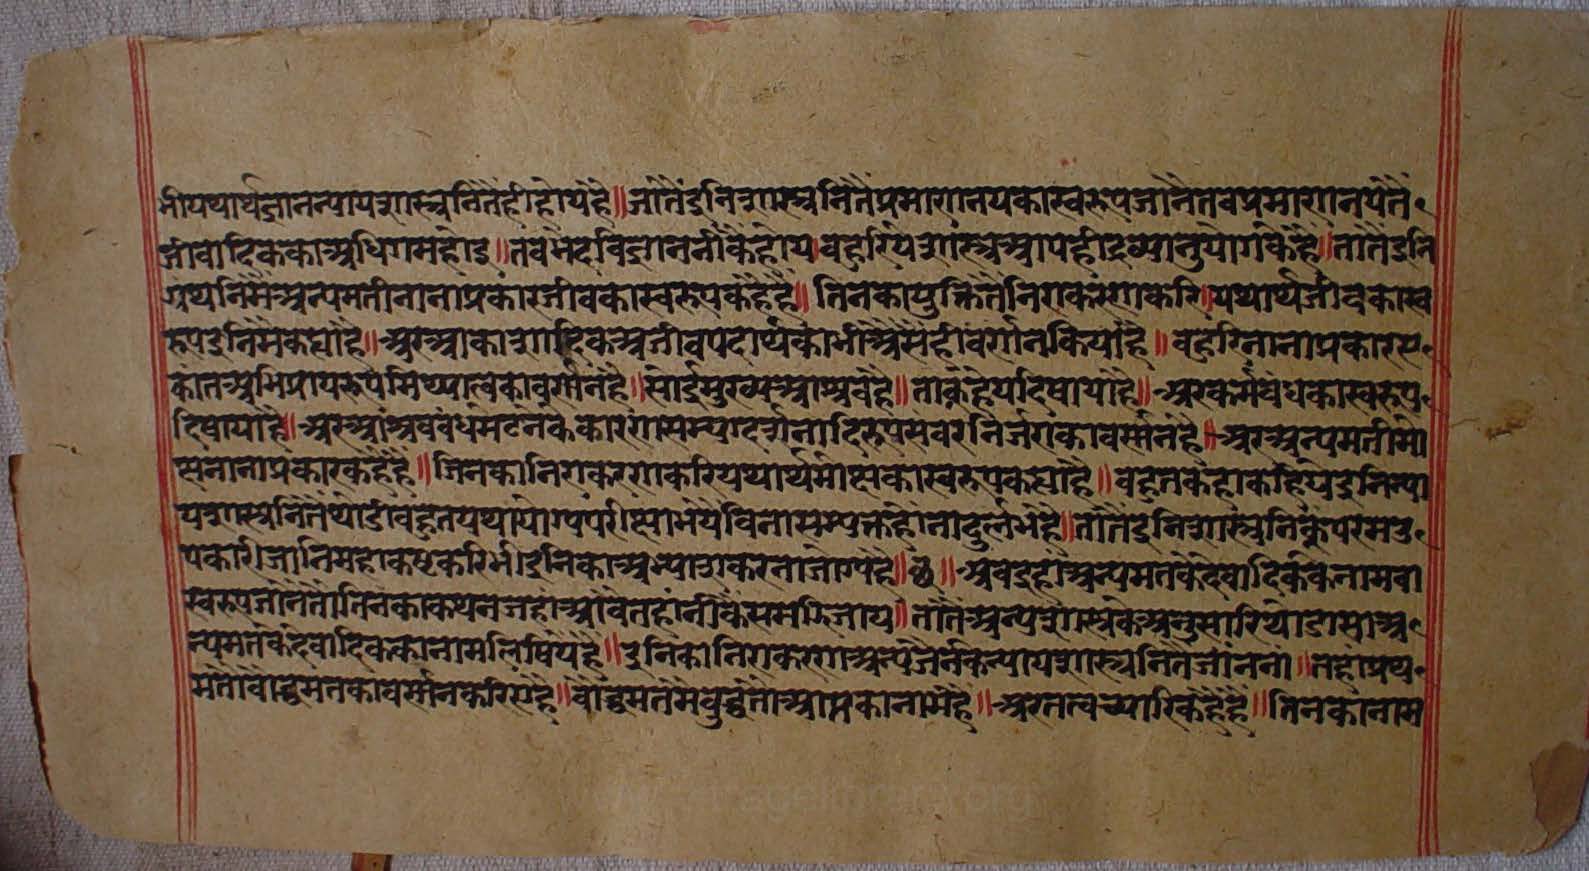 भीयथार्थज्ञाननन्यायशास्त्रनितैंहीहोयहै॥जातैंइनिशास्त्रनितैंप्रमाणनयकास्वरूपजानैंतवप्रमाणनयतैं
जीवादिककाअधिगमहोइ॥तवभेदविज्ञाननीकैहोय।वहुरियेशास्त्रआपहीद्रव्यानुयोगकेहैं॥तातैंइनि
ग्रंथनिमैंअन्यमतीनानाप्रकारजीवकास्वरूपकहैहै॥तिनकायुक्तितैंनिराकरणकरि॥यथार्थजीवकास्व
रूपइनिमैंकह्याहै॥अरआकाशादिकअजीवपदार्थकाभीअैसैंहीवर्णनकियाहै॥वहुरिनानाप्रकारए
कांतअभिप्रायरूपमिथ्यात्वकावर्णनहै॥सोईमुख्यआश्रवहै॥ताकूंहेयदिषायाहै॥अरकर्मवंधकास्वरूप
दिषायाहै॥अरआश्रववंधमेटनेकेकारणसम्यग्दर्शनादिरूपसंवरनिर्जराकावर्णनहै॥अरअन्यमतीमो
क्षनानाप्रकारकहैहै॥जिनकानिराकरणकरियथार्थमोक्षकास्वरूपकह्याहै॥वहुतकहाकहियेइनिन्या
यशास्त्रनितैंथोडीवहुतयथायोग्यपरीक्षाभयेविनासम्यक्तहोनादुर्लभहै॥तातैंइनिशास्त्रनिकूंपरमउ
पकारीजानिमहाकष्टकरिभीइनिकाअभ्यासकरनाजोग्यहै॥छ॥अवइहांअन्यमतकेदेवादिककेनामवा
स्वरूपजानैंतोतिनकाकथनजहांआवैतहांनीकैंसमझिजाय॥तातैंअन्यशास्त्रकेअनुसारिथोडासाअ
न्यमतकेदेवादिककानामलिषियेहै॥इनिकोनिराकरणअन्यजैनकेन्यायशास्त्रनितैंजाननां॥तहांप्रथ
मतोवौद्धमतकावर्णनकरिएहै॥वौद्धमतमैंवुद्धतोआप्तकानामहै॥अरतत्वच्यारिकहैहै॥तिनकोनाम